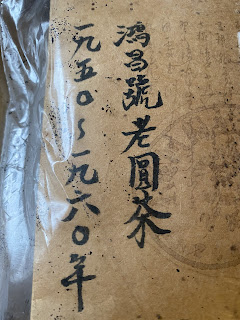 鴻昌號老圓茶
一九五〇～一九六〇年